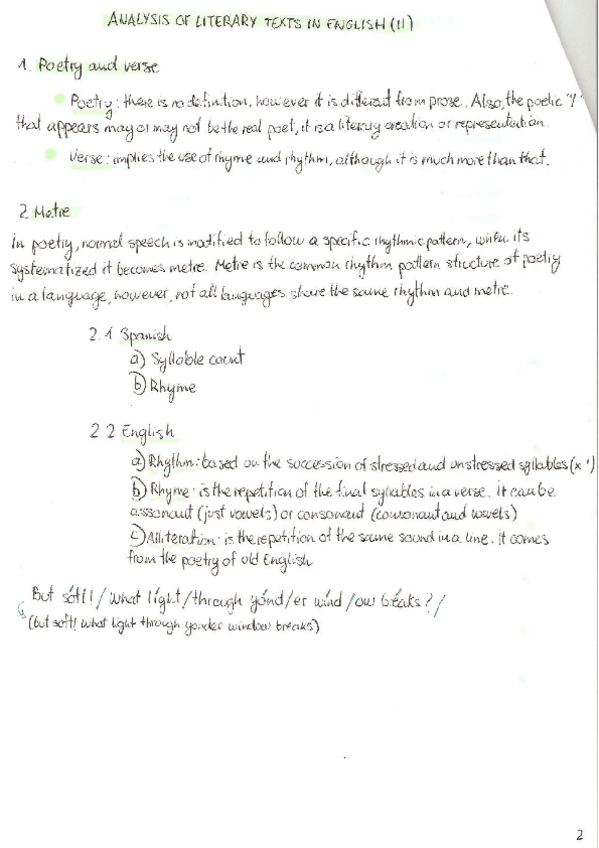 ANALYSIS OF LITERARY TEXTS IN ENGLISH (II)
1. Poetry and verse
Poetry: there is no definition, however it is different from prose. Also, the poetic "I"
that appears may or may not be the real poet, it is a literary creation or representation.
Verse: implies the use of rhyme and rhythm, although it is much more than that.
2. Metre
In poetry, normal speech is modified to follow a specific rhythmic pattern, when its
systematized it becomes metre. Metre is the common rhythm pattern structure of poetry
in a language, however, not all languages share the same rhythm and metre.
2.1 Spanish
a) Syllable count
b) Rhyme
2.2 English
a) Rhythm: based on the succession of stressed and unstressed syllables (x ')
b) Rhyme: is the repetition of the final syllables in a verse. it can be
assonant (just vowels) or consonant (consonant and vowels)
c) Alliteration: is the repetition of the same sound in a line. it comes
from the poetry of old English
But sóft! / what líght / through yónd/er wínd /ow bréaks? /
(but soft! what light through yonder window breaks)
2